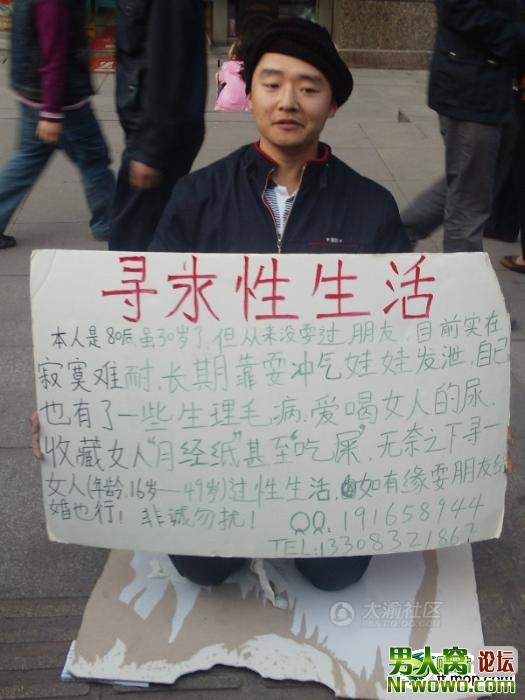 寻求性生活
本人是80后,虽30岁了,但从来没耍过朋友,目前实在
寂寞难耐,长期靠耍冲气娃娃发泄,自己
也有了一些生理毛病,爱喝女人的尿,
收藏女人"月经纸"甚至"吃屎",无奈之下寻一
女人(年龄,16岁—49岁)过性生活,如有缘耍朋友结
婚也行! 非诚勿扰! QQ:191658944
TEL:13308321867
大渝社区
BBS.CQ.QQ.COM
男人窝论坛
Nrwowo.com